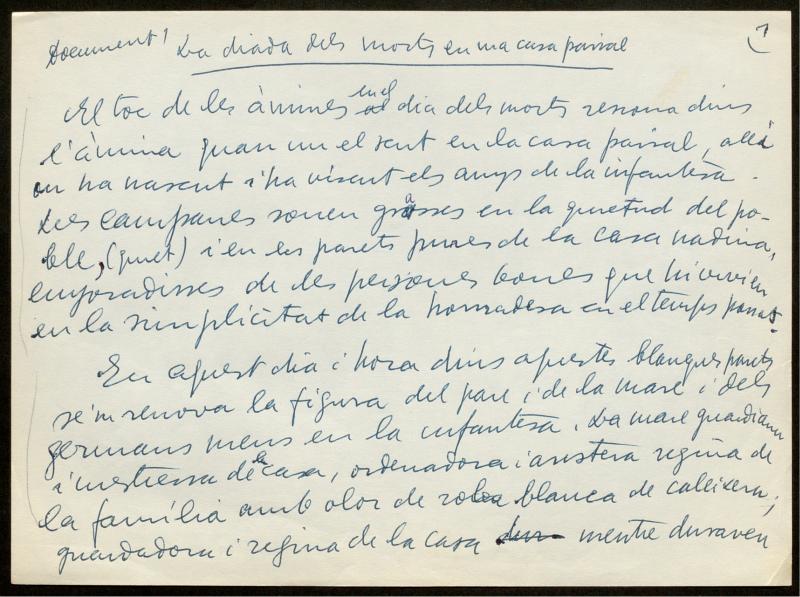 Document 1 La diada dels morts en ma casa pairal 1
El toc de les ànimes en el dia dels morts ressona dins
l'ànima quan un el sent en la casa pairal, allà
on ha nascut i ha viscut els anys de la infantesa.
Les campanes sonen grasses en la quietud del po-
ble, (quiet) i en les parets pures de la casa nadiua,
enyoradisses de les persones bones que hi vivien
en la simplicitat de la honradesa en el temps passat.
En aquest dia i hora dins aquestes blanques parets
se'm renova la figura del pare i de la mare i dels
germans meus en la infantesa. La mare guardiana
i mestressa de la casa, ordenadora i austera regina de
la família amb olor de roba blanca de calaixera;
guardadora i regina de la casa mentre duraven